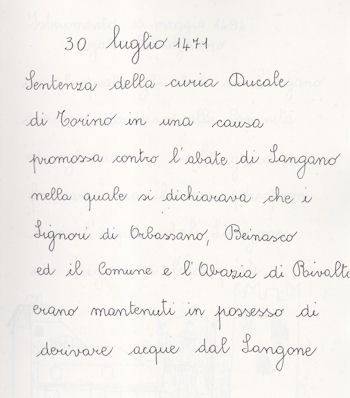 30 luglio 1471
Sentenza della curia Ducale
di Torino in una causa
promossa contro l'abate di Sangano
nella quale si dichiarava che i
Signori di Orbassano, Beinasco
ed il Comune e l'Abazia di Rivalta
erano mantenuti in possesso di
derivare acque dal Sangone